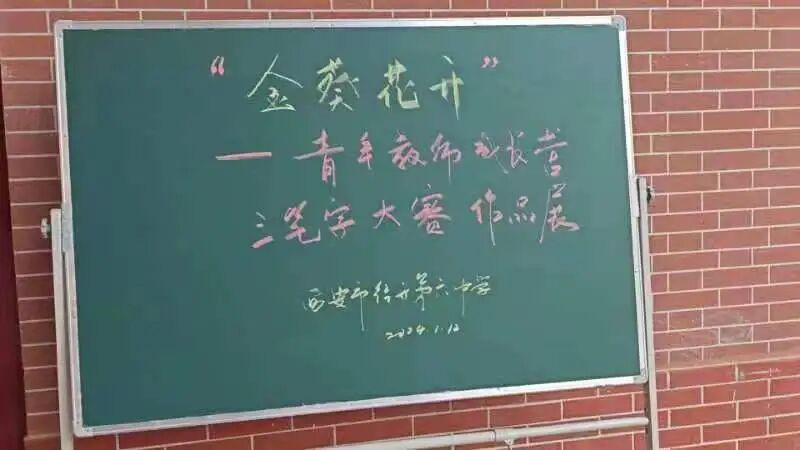 “金葵花开”
— 青年教师成长营
三笔字大赛 作品展
西安市经开第六中学
2024.1.12